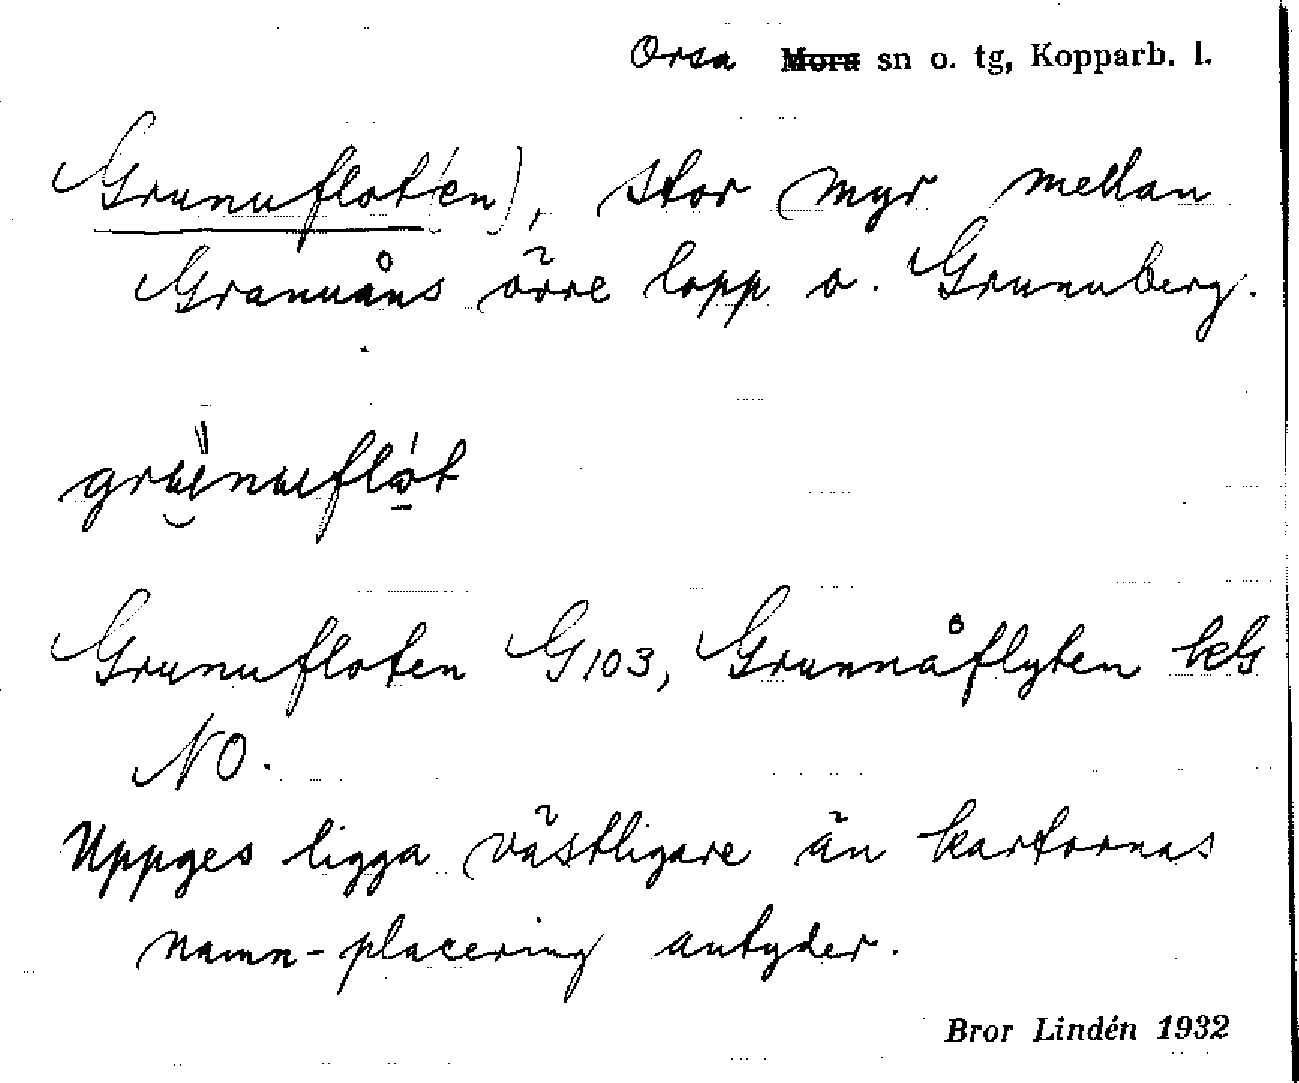 Orsa Mora sn o. tg, Kopparb. l.
Grunufloten), stor myr mellan
Granuåns övre lopp o. Grunuberg.
Grunufloten G103, Grunnåflyten
NO.
Uppges ligga västligare än kartornas
namn-placering antyder.
Bror Lindén 1932